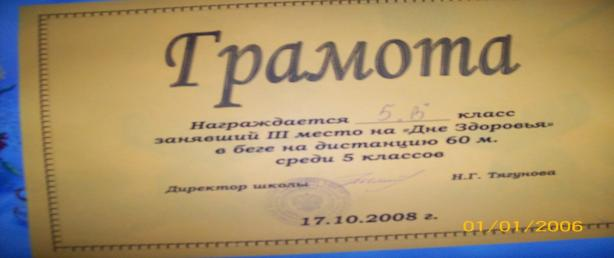 Грамота
Награждается 5 "В" класс
занявший III место на «Дне Здоровья»
в беге на дистанцию 60 м.
среди 5 классов
Директор школы Н.Г. Тягунова
17.10.2008 г.
01/01/2006